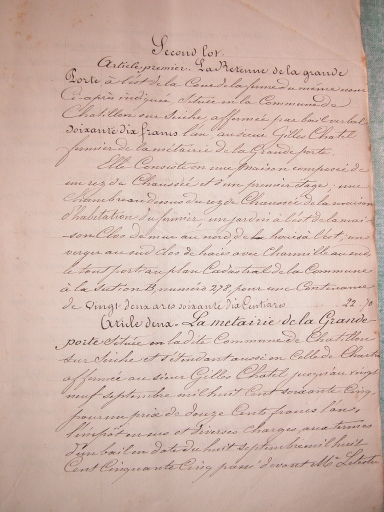 Second lot.
Article premier. La Retenue de la grande
Porte, à l'est de la Cour de la ferme du même nom
Ci-après indiquée, Située en la Commune de
Chatillon sur Seiche, affermée par bail verbal
soixante dix francs l'an au sieur Gilles Chatel
fermier de la métairie de la Grande porte.
Elle Consiste en une maison composée de
un rez de Chaussée et d'un premier étage; une
Chambre au dessus du rez de Chaussée de la maison
d'habitation du fermier; un jardin à l'est de la mai-
-son Clos de mur au nord, de haies à l'Est; un
verger au sud clos de haies avec Charmille au sud
le tout porté au plan Cadastral de la Commune
à la Section B, numéro 278, pour une Contenance
de vingt-deux ares soixante dix Centiares 22. 70
Article deux. La métairie de la Grande
porte Située en la dite Commune de Chatillon
sur Seiche et s'étendant aussi en Celle de Chartres
affermée au sieur Gilles Chatel jusqu'au vingt
neuf septembre mil huit Cent soixante Cinq
pour un prix de douze Cents francs l'an,
l'impôt en sus et diverses charges, aux termes
d'un bail en date du huit septembre mil huit
Cent Cinquante Cinq passé devant Me